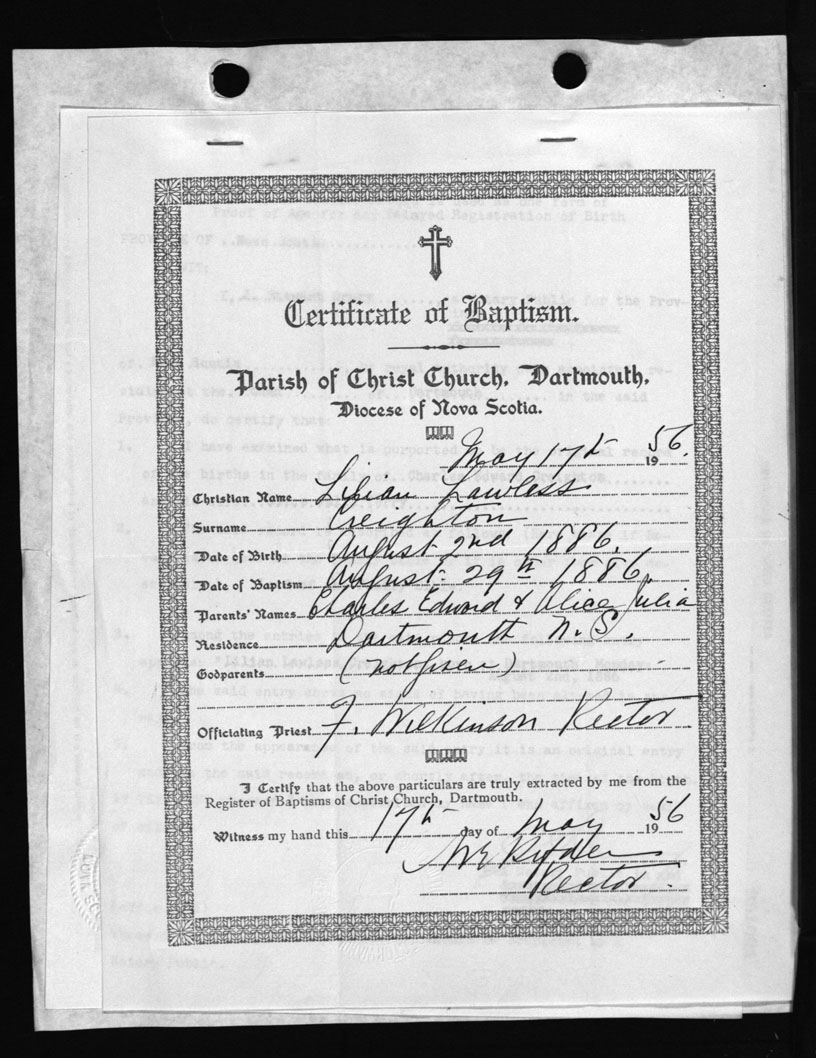 Certificate of Baptism.
Parish of Christ Church, Dartmouth,
Diocese of Nova Scotia.
May 17th 1956.
Christian Name Lilian Lawless.
Surname Creighton
Date of Birth August 2nd 1886.
Date of Baptism August 29th 1886.
Parents' Names Charles Edward & Alice Julia
Residence Dartmouth N.S.
Godparents (not given)
Officiating Priest F. Wilkinson Rector
I Certify that the above particulars are truly extracted by me from the
Register of Baptisms of Christ Church, Dartmouth.
Witness my hand this 17th day of May 1956
Rector.